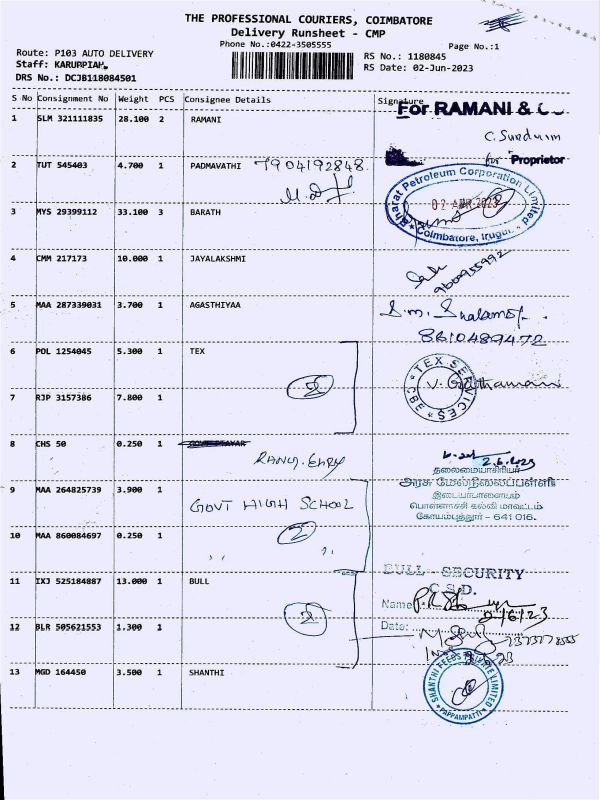 THE PROFESSIONAL COURIERS, COIMBATORE
Delivery Runsheet - CMP
Phone No.:0422-3505555
Page No.:1
Route: P103 AUTO DELIVERY
Staff: KARUPPIAH
DRS No.: DCJB118084501
RS No.: 1180845
RS Date: 02-Jun-2023
S No Consignment No Weight PCS Consignee Details Signature
For RAMANI &
1 SLM 321111835 28.100 2 RAMANI
C. Sundram
for Proprietor
2 TUT 545403 4.700 1 PADMAVATHI 7904192848
Bharat Petroleum Corporation Limited
02 APR 2023
Coimbatore, Irugur
3 MYS 29399112 33.100 3 BARATH
4 CMM 217173 10.000 1 JAYALAKSHMI
9600955992
5 MAA 287339031 3.700 1 AGASTHIYAA
8610489472
6 POL 1254045 5.300 1 TEX
2
TEX SERVICES
CBE
7 RJP 3157386 7.800 1
8 CHS 50 0.250 1
2.6.2023
தலைமையாசிரியர்
அரசு மேல்நிலைப்பள்ளி
இடையர்பாளையம்
பொள்ளாச்சி கல்வி மாவட்டம்
கோயம்புத்தூர் - 641 016.
9 MAA 264825739 3.900 1
GOVT HIGH SCHOOL
2
10 MAA 860084697 0.250 1
,, ,,
11 IXJ 525184887 13.000 1 BULL
BULL SECURITY
C.S.D.
Name
2/6/23
2
Date:
12 BLR 505621553 1.300 1
13 MGD 164450 3.500 1 SHANTHI
SHANTHI FEEDS PRIVATE LIMITED
PAPPAMPATTI